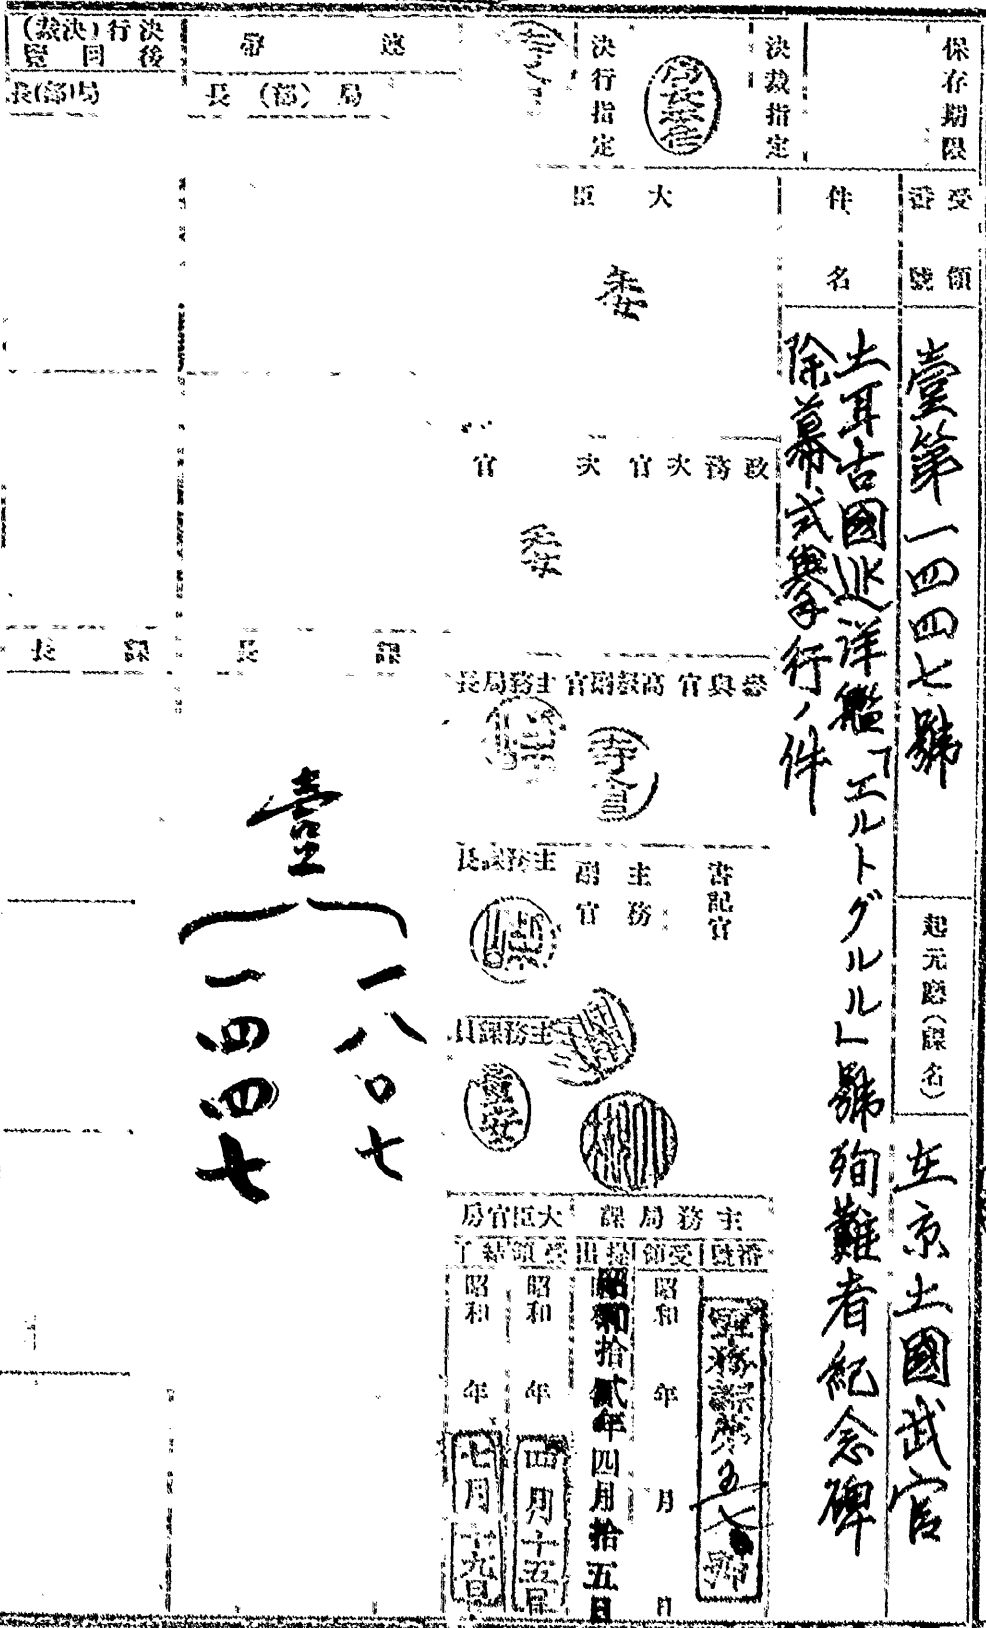 保存期限
決裁指定
決行指定
決行(決裁)
後同覽
連帶
局(部)長
局(部)長
受領番號
壹第一四四七號
起元廳(課名)
在京土國武官
件名
土耳古國巡洋艦「エルトグルル」號殉難者紀念碑
除幕式擧行ノ件
大臣
委
政務次官
次官
委
參與官
高級副官
主務局長
課長
課長
書記官
主務副官
主務課長
主務課員
壹
一八〇七
一四四七
主務局課
大臣官房
番號
受領
提出
受領
結了
昭和 年 月 日
昭和拾貳年四月拾五日
昭和 年
四月十五日
昭和 年
七月十九日